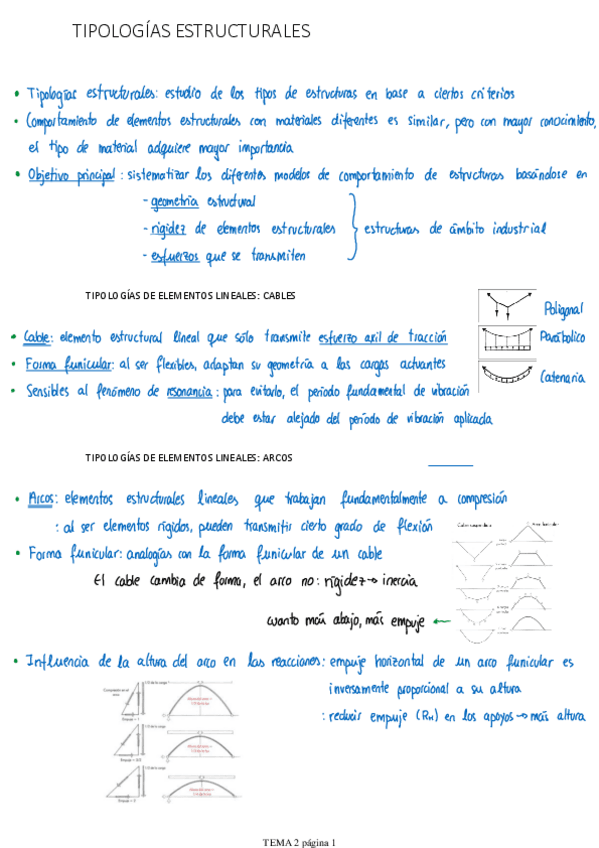 TIPOLOGÍAS ESTRUCTURALES
• Tipologías estructurales: estudio de los tipos de estructuras en base a ciertos criterios
• Comportamiento de elementos estructurales con materiales diferentes es similar, pero con mayor conocimiento,
el tipo de material adquiere mayor importancia
• Objetivo principal: sistematizar los diferentes modelos de comportamiento de estructuras basándose en
- geometría estructural
- rigidez de elementos estructurales
estructuras de ámbito industrial
- esfuerzos que se transmiten
TIPOLOGÍAS DE ELEMENTOS LINEALES: CABLES
Poligonal
• Cable: elemento estructural lineal que sólo transmite esfuerzo axil de tracción
Parabólico
• Forma funicular: al ser flexibles, adaptan su geometría a las cargas actuantes
Catenaria
• Sensibles al fenómeno de resonancia: para evitarlo, el periodo fundamental de vibración
debe estar alejado del periodo de vibración aplicada
TIPOLOGÍAS DE ELEMENTOS LINEALES: ARCOS
• Arcos: elementos estructurales lineales que trabajan fundamentalmente a compresión
: al ser elementos rígidos, pueden transmitir cierto grado de flexión
• Forma funicular: analogías con la forma funicular de un cable
El cable cambia de forma, el arco no: rigidez → inercia
cuanto más abajo, más empuje ←
• Influencia de la altura del arco en las reacciones: empuje horizontal de un arco funicular es
inversamente proporcional a su altura
: reducir empuje (RH) en los apoyos → más altura
TEMA 2 página 1